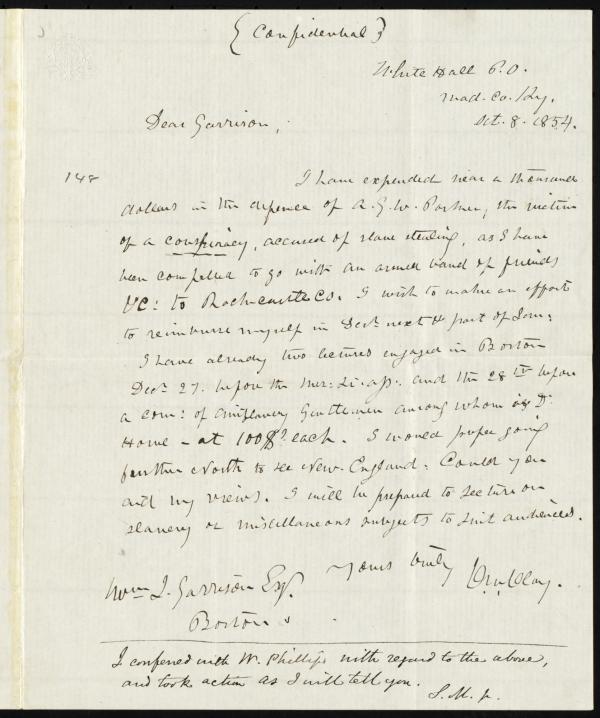 {Confidential}
White Hall P.O.
Mad. Co. Ky.
Oct. 8. 1854.
Dear Garrison,
148
I have expended near a thousand
dollars in the defence of A. G. W. Parker, the victim
of a conspiracy, accused of slave stealing, as I have
been compelled to go with an armed band of friends
&C: to Rockcastle Co. I wish to make an effort
to reimburse myself in Decr. next & part of Jan:
I have already two lectures engaged in Boston
Decr. 27. before the Mer: Li: As. and the 28th before
a com: of antislavery Gentlemen among whom is Dr.
Howe – at 100$ each. I would prefer going
further North to see New-England. Could you
aid my views. I will be prepared to lecture on
slavery or miscellaneous subjects to suit audiences.
Yours truly
C. M. Clay.
Wm L. Garrison Esq.
Boston
I conferred with W. Phillips with regard to the above,
and took action as I will tell you.
S. M. Jr.